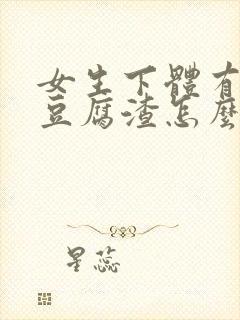 女生下體有
豆腐渣怎麼
星蕊